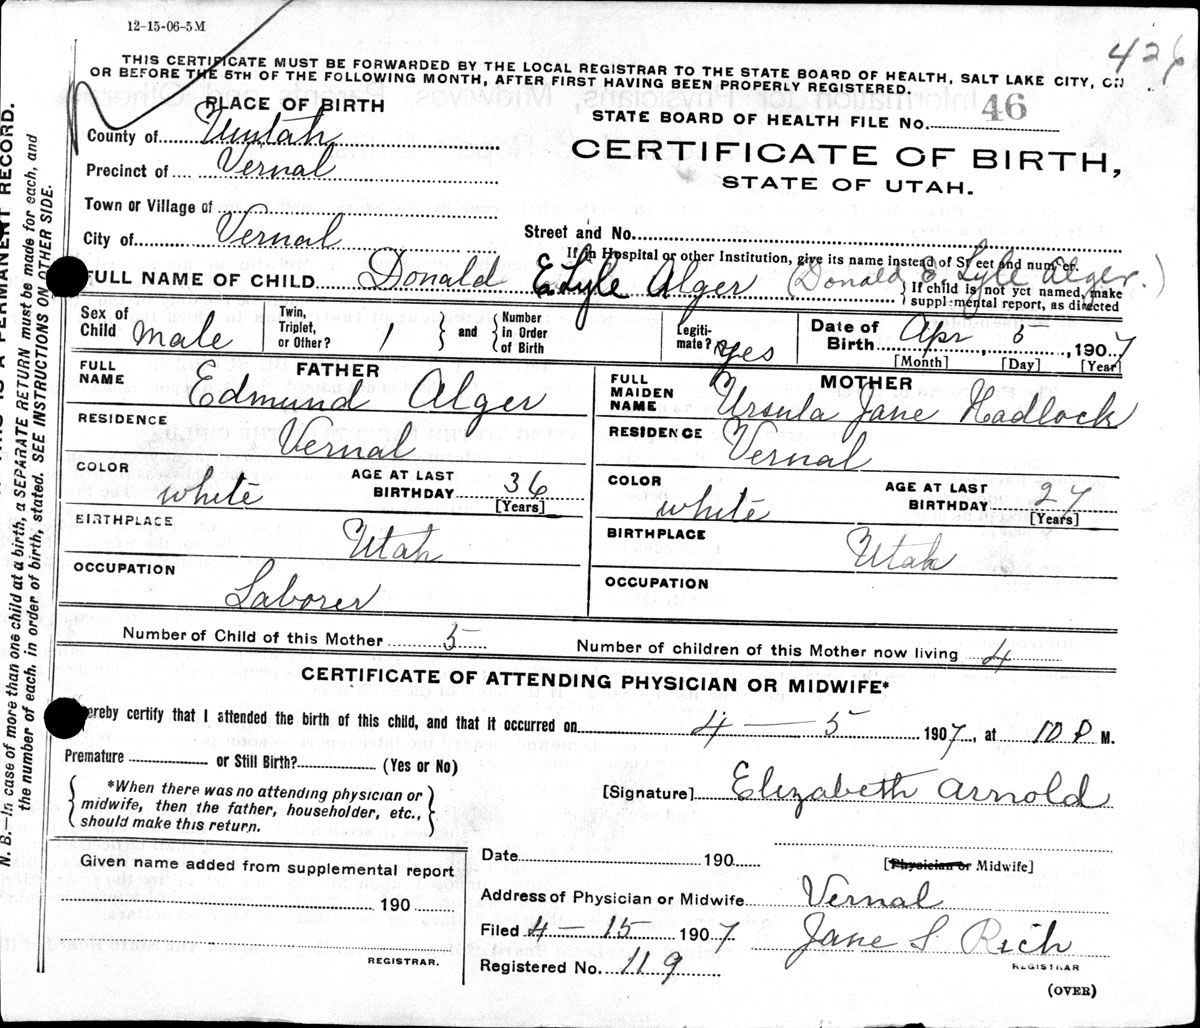 12-15-06-5M
426
THIS CERTIFICATE MUST BE FORWARDED BY THE LOCAL REGISTRAR TO THE STATE BOARD OF HEALTH, SALT LAKE CITY, ON
OR BEFORE THE 5TH OF THE FOLLOWING MONTH, AFTER FIRST HAVING BEEN PROPERLY REGISTERED.
PLACE OF BIRTH
STATE BOARD OF HEALTH FILE No. 46
County of Uintah
CERTIFICATE OF BIRTH,
STATE OF UTAH.
Precinct of Vernal
Town or Village of
City of Vernal
Street and No.
If in Hospital or other Institution, give its name instead of Street and number.
FULL NAME OF CHILD Donald E Lyle Alger (Donald E Lyle Alger.)
If child is not yet named, make
supplemental report, as directed
Sex of Child male
Twin, Triplet, or Other? 1 and Number in Order of Birth
Legiti-mate? yes
Date of Birth Apr 1907
[Month] [Day] [Year]
FATHER
FULL NAME Edmund Alger
RESIDENCE Vernal
COLOR white
AGE AT LAST BIRTHDAY 36
[Years]
BIRTHPLACE Utah
OCCUPATION Laborer
MOTHER
FULL MAIDEN NAME Ursula Jane Hadlock
RESIDENCE Vernal
COLOR white
AGE AT LAST BIRTHDAY 27
[Years]
BIRTHPLACE Utah
OCCUPATION
Number of Child of this Mother 5 Number of children of this Mother now living 4
CERTIFICATE OF ATTENDING PHYSICIAN OR MIDWIFE*
hereby certify that I attended the birth of this child, and that it occurred on 4 — 5 1907, at 10 P M.
Premature or Still Birth? (Yes or No)
*When there was no attending physician or
midwife, then the father, householder, etc.,
should make this return.
[Signature] Elizabeth Arnold
Date 190
[Physician or Midwife]
Given name added from supplemental report
190
REGISTRAR.
Address of Physician or Midwife Vernal
Filed 4 — 15 1907 Jane S Rich
REGISTRAR
Registered No. 119
(OVER)
N. B.—In case of more than one child at a birth, a SEPARATE RETURN must be made for each, and
the number of each, in order of birth, stated. SEE INSTRUCTIONS ON OTHER SIDE.
IS A PERMANENT RECORD.